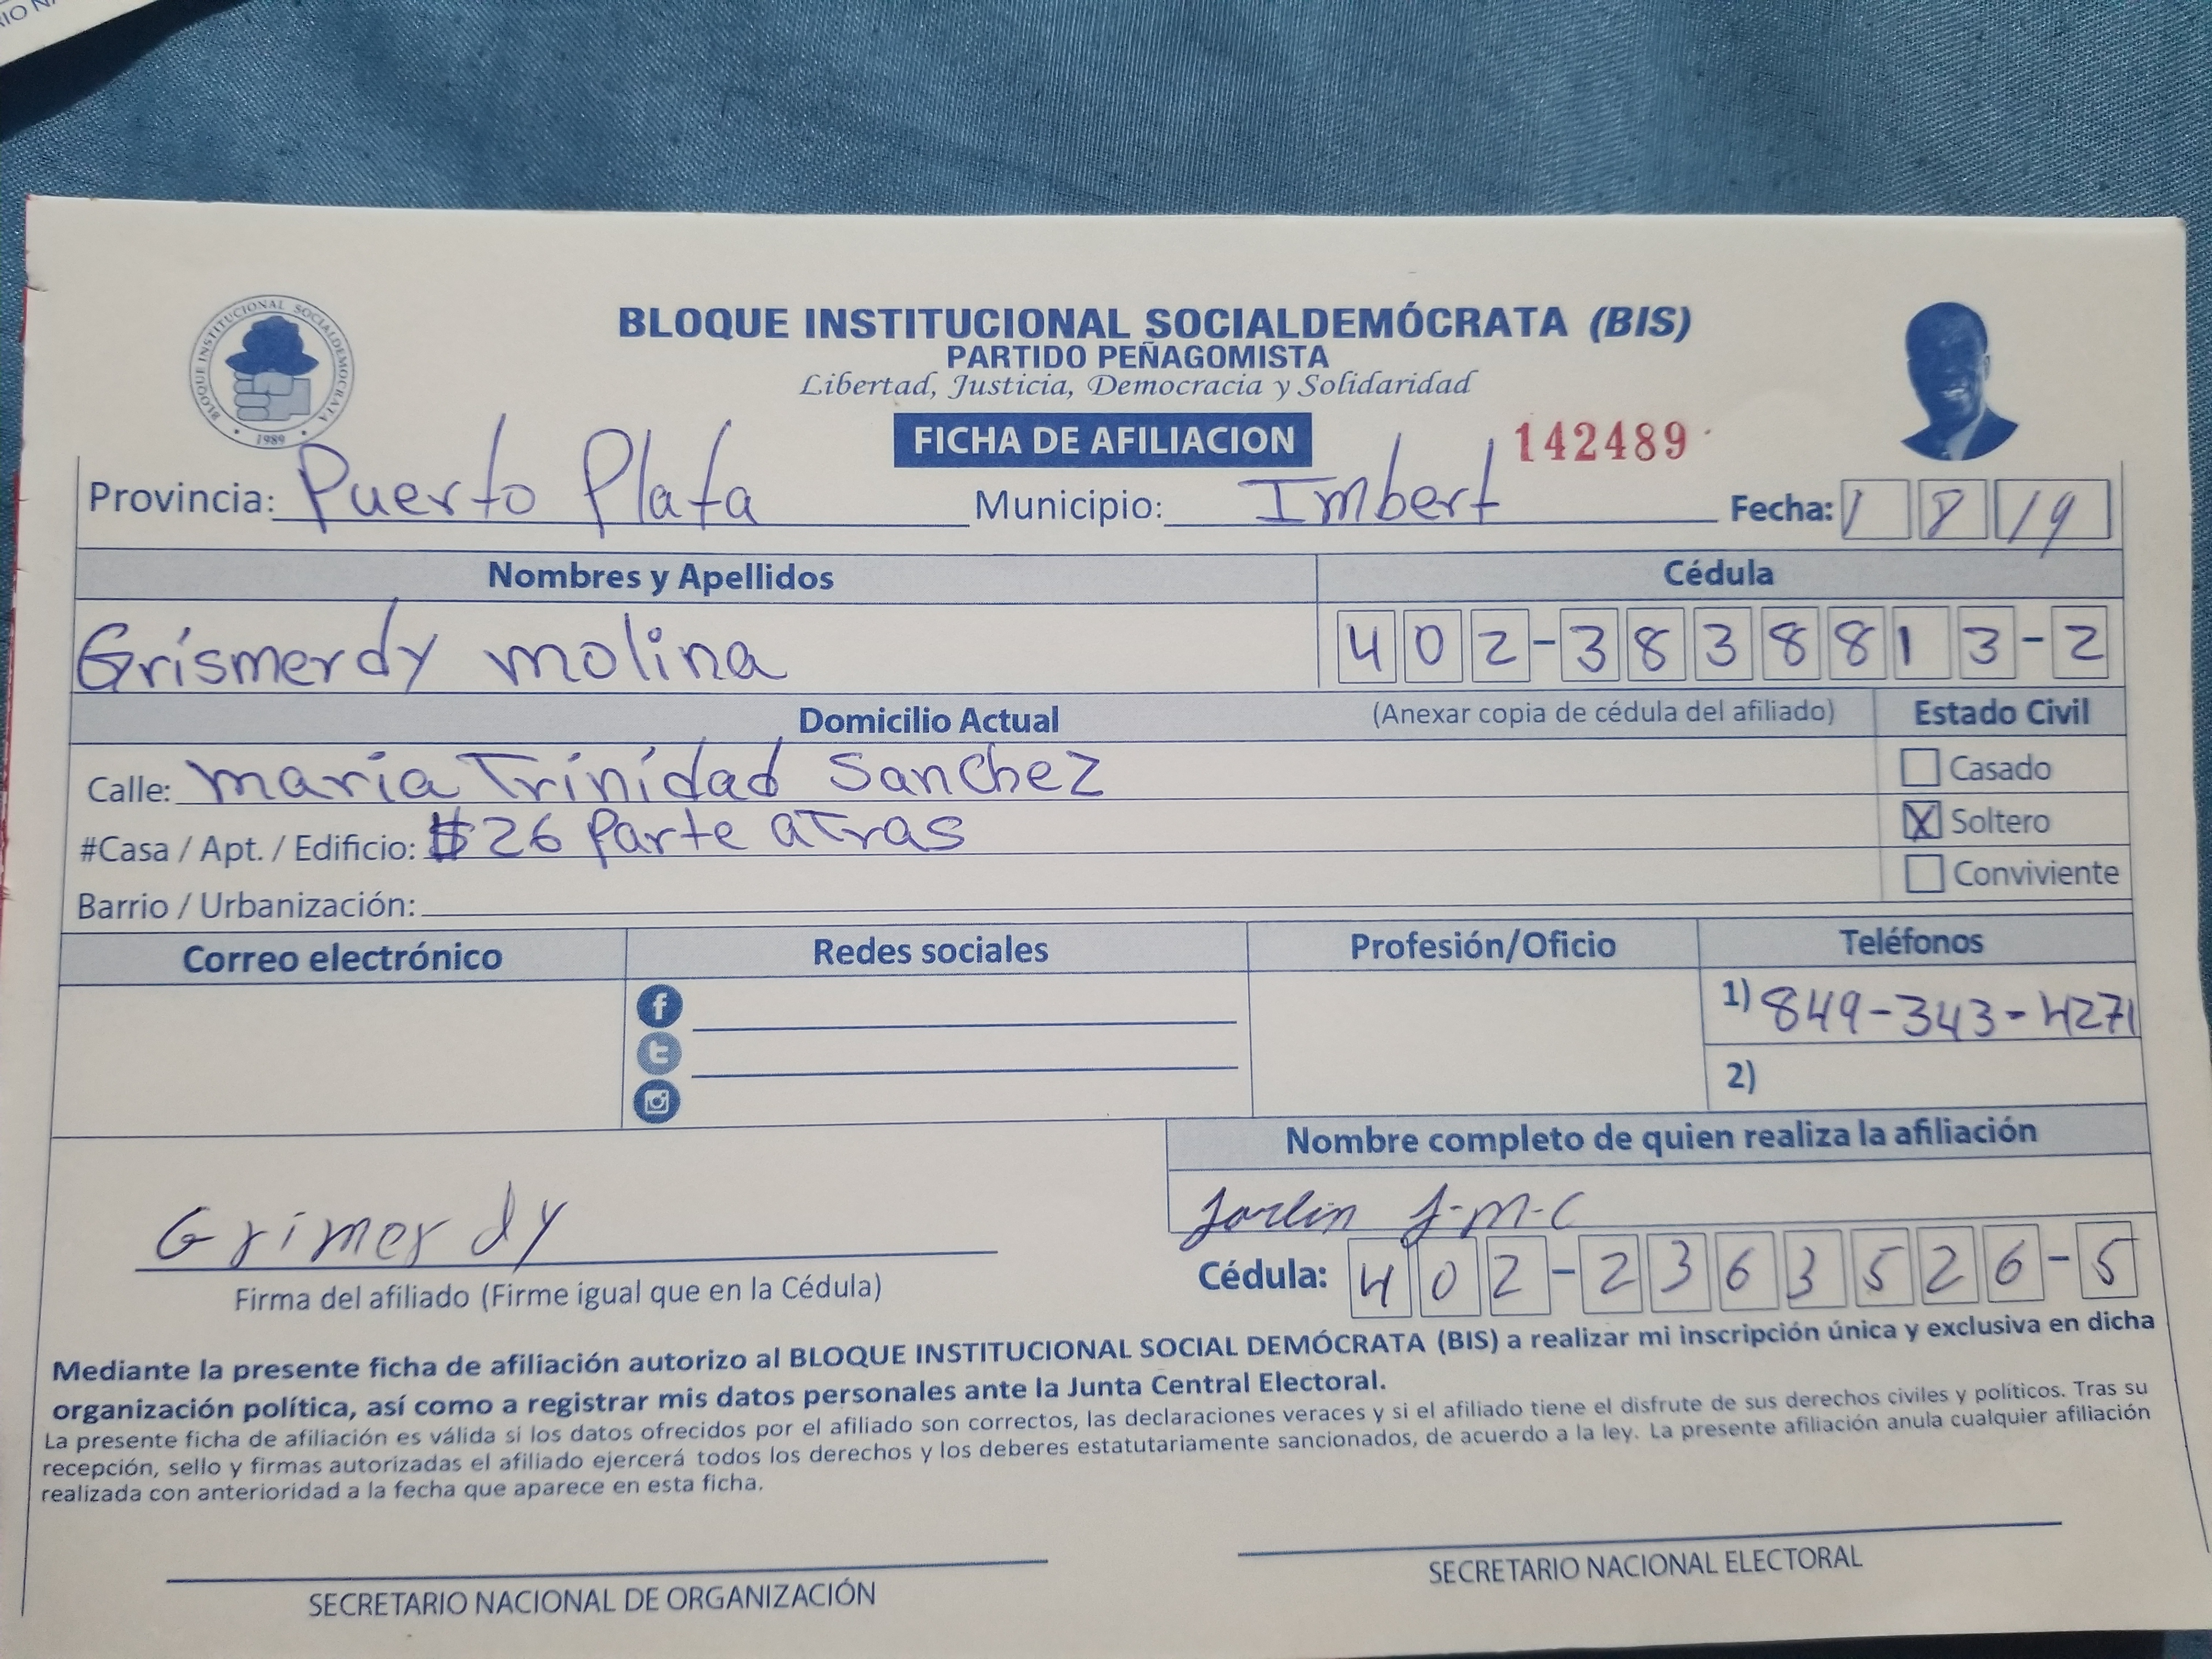 BLOQUE INSTITUCIONAL SOCIALDEMÓCRATA
1989
BLOQUE INSTITUCIONAL SOCIALDEMÓCRATA (BIS)
PARTIDO PEÑAGOMISTA
Libertad, Justicia, Democracia y Solidaridad
FICHA DE AFILIACION 142489
Provincia: Puerto Plata Municipio: Imbert Fecha: 1 8 19
Nombres y Apellidos Cédula
Grismerdy molina 402-3838813-2
Domicilio Actual (Anexar copia de cédula del afiliado) Estado Civil
Calle: maria Trinidad Sanchez Casado
#Casa / Apt. / Edificio: $26 Parte aTras X Soltero
Barrio / Urbanización: Conviviente
Correo electrónico Redes sociales Profesión/Oficio Teléfonos
1) 849-343-4271
2)
Nombre completo de quien realiza la afiliación
J-M-C
Grimerdy
Firma del afiliado (Firme igual que en la Cédula)
Cédula: 402-2363526-5
Mediante la presente ficha de afiliación autorizo al BLOQUE INSTITUCIONAL SOCIAL DEMÓCRATA (BIS) a realizar mi inscripción única y exclusiva en dicha
organización política, así como a registrar mis datos personales ante la Junta Central Electoral.
La presente ficha de afiliación es válida si los datos ofrecidos por el afiliado son correctos, las declaraciones veraces y si el afiliado tiene el disfrute de sus derechos civiles y políticos. Tras su
recepción, sello y firmas autorizadas el afiliado ejercerá todos los derechos y los deberes estatutariamente sancionados, de acuerdo a la ley. La presente afiliación anula cualquier afiliación
realizada con anterioridad a la fecha que aparece en esta ficha.
SECRETARIO NACIONAL DE ORGANIZACIÓN SECRETARIO NACIONAL ELECTORAL